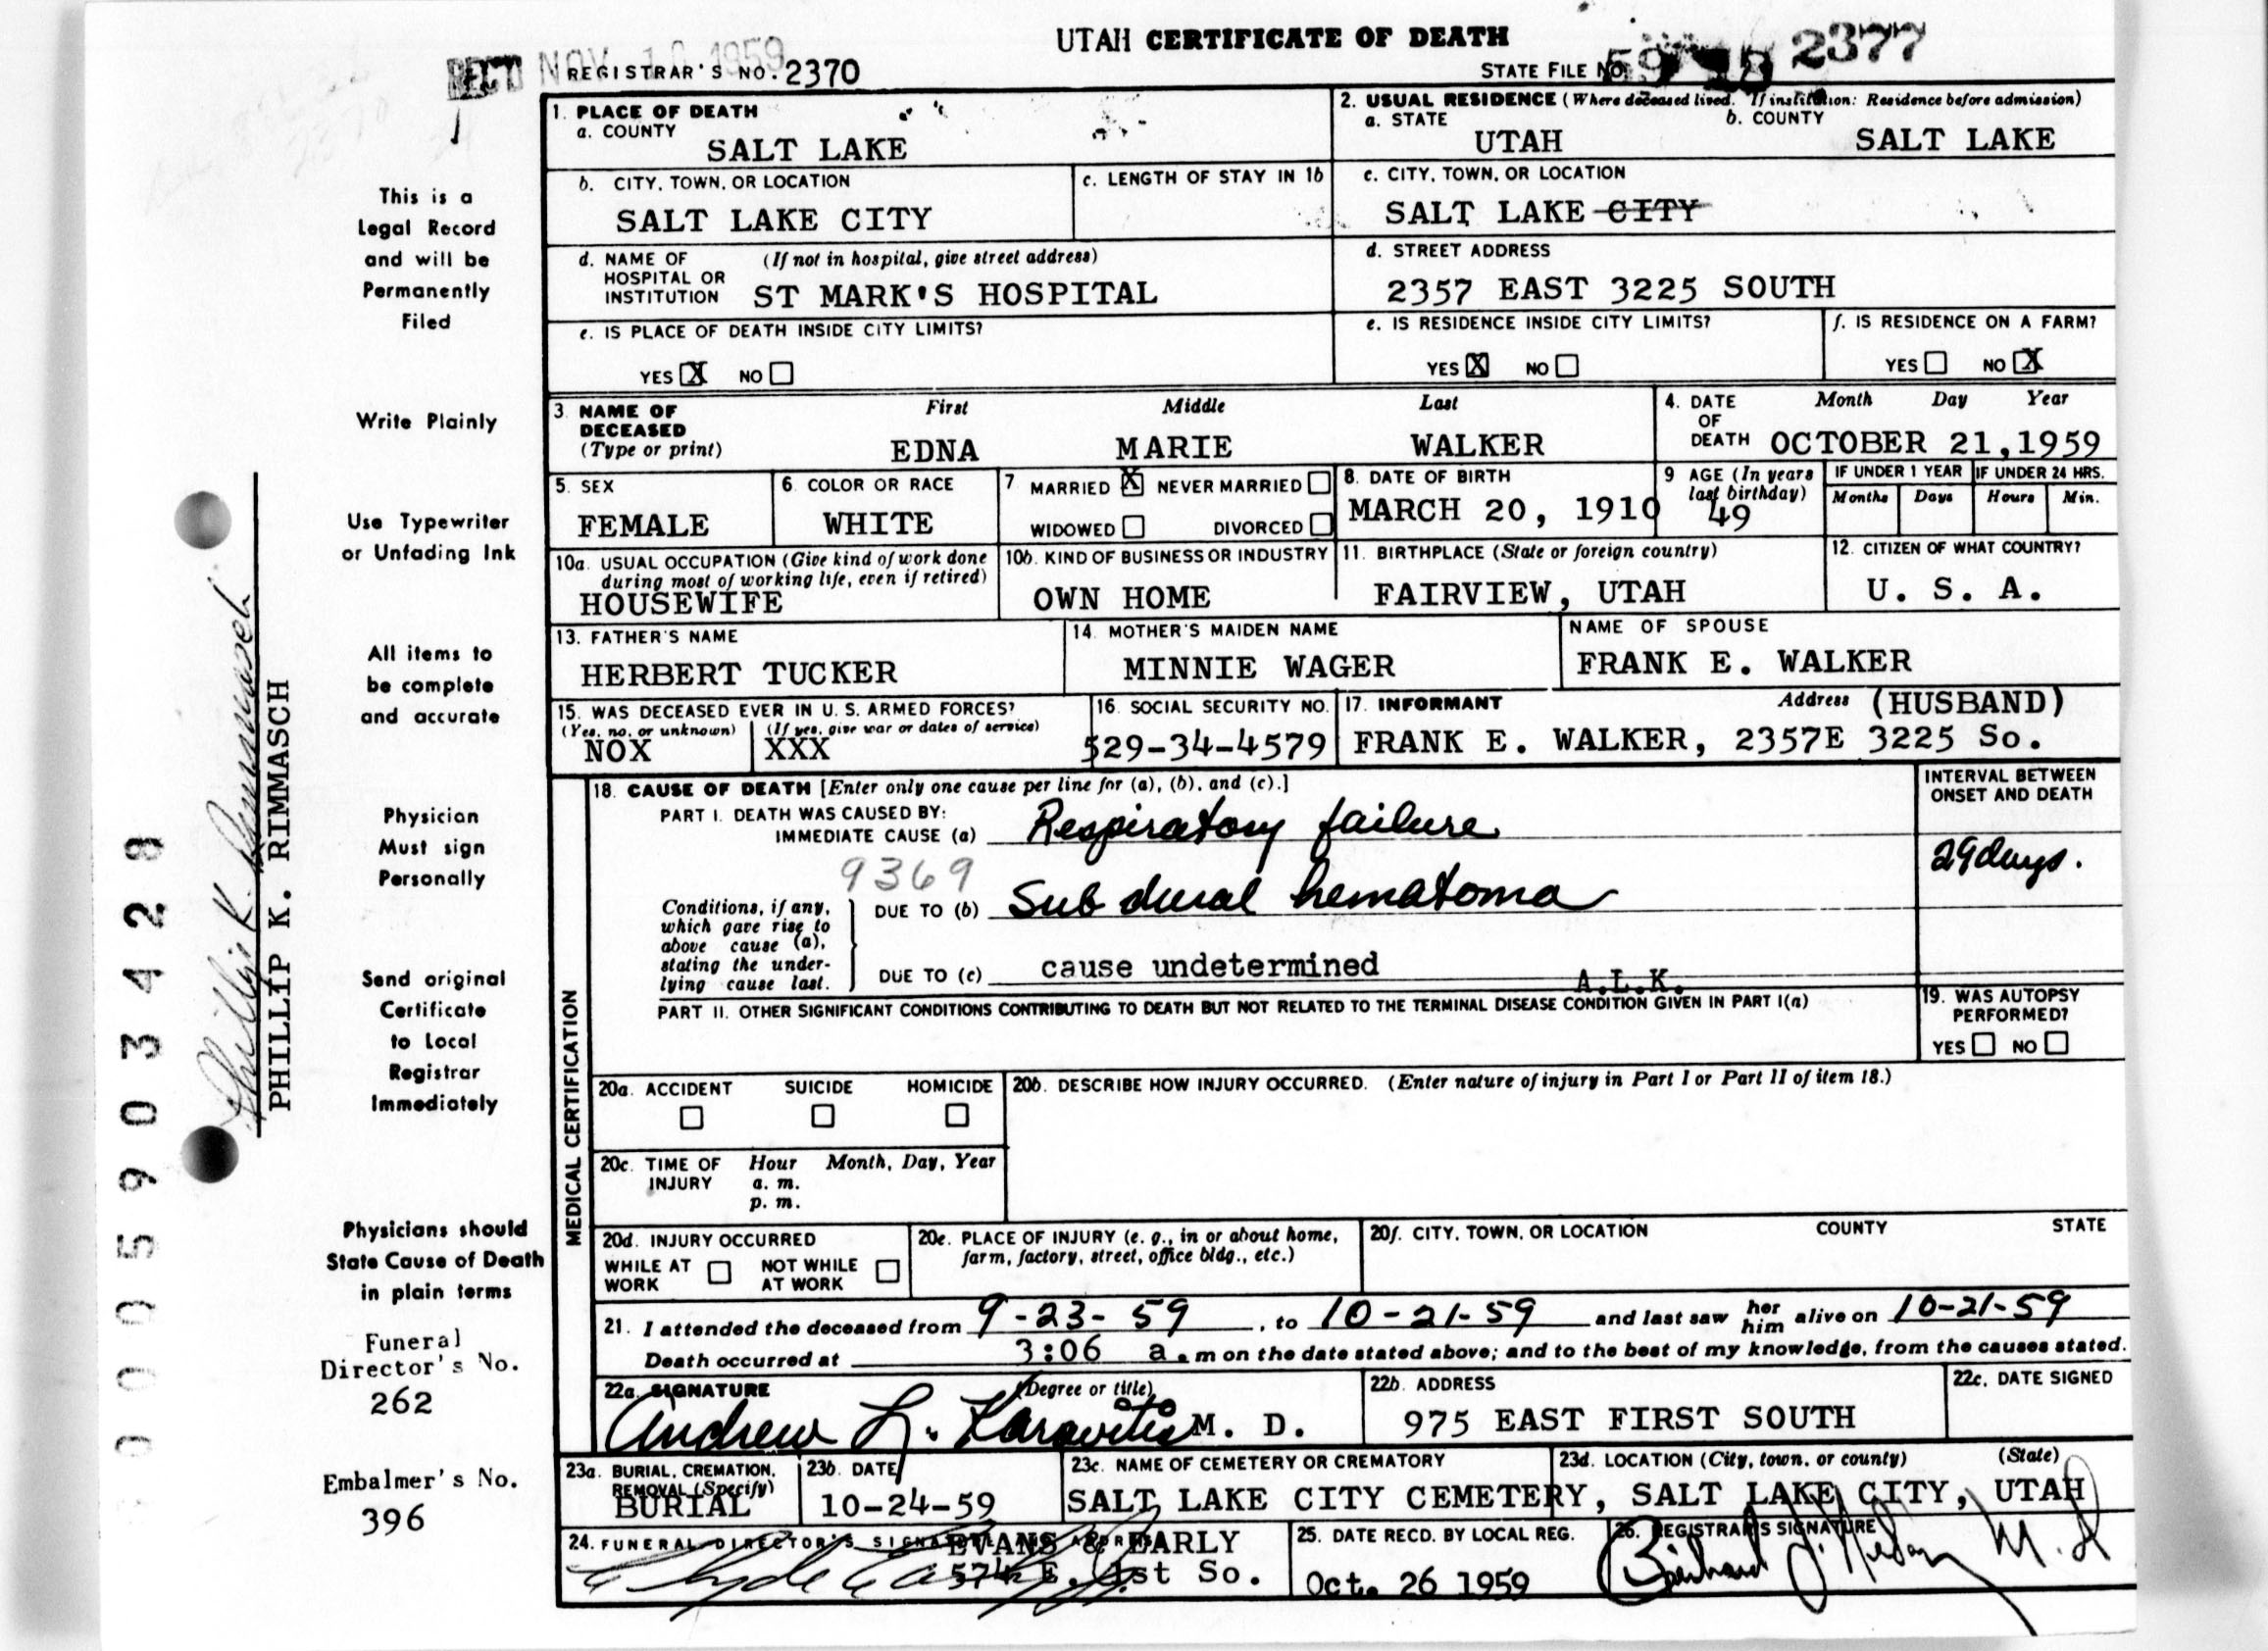 UTAH CERTIFICATE OF DEATH
REC'D NOV 1959
REGISTRAR'S NO. 2370
STATE FILE NO. 59 18 2377
1. PLACE OF DEATH
a. COUNTY
SALT LAKE
2. USUAL RESIDENCE (Where deceased lived. If institution: Residence before admission)
a. STATE b. COUNTY
UTAH SALT LAKE
b. CITY, TOWN, OR LOCATION c. LENGTH OF STAY IN 1b
SALT LAKE CITY
c. CITY, TOWN, OR LOCATION
SALT LAKE CITY
d. NAME OF (If not in hospital, give street address)
HOSPITAL OR
INSTITUTION ST MARK'S HOSPITAL
d. STREET ADDRESS
2357 EAST 3225 SOUTH
e. IS PLACE OF DEATH INSIDE CITY LIMITS?
YES X NO
e. IS RESIDENCE INSIDE CITY LIMITS? f. IS RESIDENCE ON A FARM?
YES X NO YES NO X
3. NAME OF First Middle Last
DECEASED
(Type or print) EDNA MARIE WALKER
4. DATE Month Day Year
OF
DEATH OCTOBER 21,1959
5. SEX
FEMALE
6. COLOR OR RACE
WHITE
7 MARRIED X NEVER MARRIED
WIDOWED DIVORCED
8. DATE OF BIRTH
MARCH 20, 1910
9 AGE (In years
last birthday)
49
IF UNDER 1 YEAR IF UNDER 24 HRS.
Months Days Hours Min.
10a. USUAL OCCUPATION (Give kind of work done
during most of working life, even if retired)
HOUSEWIFE
10b. KIND OF BUSINESS OR INDUSTRY
OWN HOME
11. BIRTHPLACE (State or foreign country)
FAIRVIEW, UTAH
12. CITIZEN OF WHAT COUNTRY?
U. S. A.
13. FATHER'S NAME
HERBERT TUCKER
14. MOTHER'S MAIDEN NAME
MINNIE WAGER
NAME OF SPOUSE
FRANK E. WALKER
15. WAS DECEASED EVER IN U. S. ARMED FORCES?
(Yes, no, or unknown) (If yes, give war or dates of service)
NOX XXX
16. SOCIAL SECURITY NO.
529-34-4579
17. INFORMANT Address (HUSBAND)
FRANK E. WALKER, 2357E 3225 So.
MEDICAL CERTIFICATION
18. CAUSE OF DEATH [Enter only one cause per line for (a), (b), and (c).]
INTERVAL BETWEEN
ONSET AND DEATH
PART I. DEATH WAS CAUSED BY:
IMMEDIATE CAUSE (a) Respiratory failure
29 days.
9369
Conditions, if any,
which gave rise to
above cause (a),
stating the under-
lying cause last.
DUE TO (b) Sub dural hematoma
DUE TO (c) cause undetermined A.L.K.
PART II. OTHER SIGNIFICANT CONDITIONS CONTRIBUTING TO DEATH BUT NOT RELATED TO THE TERMINAL DISEASE CONDITION GIVEN IN PART I(a)
19. WAS AUTOPSY
PERFORMED?
YES NO
20a. ACCIDENT SUICIDE HOMICIDE
20b. DESCRIBE HOW INJURY OCCURRED. (Enter nature of injury in Part I or Part II of item 18.)
20c. TIME OF Hour Month, Day, Year
INJURY a. m.
p. m.
20d. INJURY OCCURRED
WHILE AT NOT WHILE
WORK AT WORK
20e. PLACE OF INJURY (e. g., in or about home,
farm, factory, street, office bldg., etc.)
20f. CITY, TOWN, OR LOCATION COUNTY STATE
21. I attended the deceased from 9-23-59, to 10-21-59 and last saw her him alive on 10-21-59
Death occurred at 3:06 a.m on the date stated above; and to the best of my knowledge, from the causes stated.
22a. SIGNATURE (Degree or title)
Andrew L. Karavitis M. D.
22b. ADDRESS
975 EAST FIRST SOUTH
22c. DATE SIGNED
23a. BURIAL, CREMATION,
REMOVAL (Specify)
BURIAL
23b. DATE
10-24-59
23c. NAME OF CEMETERY OR CREMATORY 23d. LOCATION (City, town, or county) (State)
SALT LAKE CITY CEMETERY, SALT LAKE CITY, UTAH
24. FUNERAL DIRECTOR'S SIGNATURE ADDRESS
EVANS & EARLY
574 E. 1st So.
25. DATE RECD. BY LOCAL REG.
Oct. 26 1959
26. REGISTRAR'S SIGNATURE
M.D
This is a
Legal Record
and will be
Permanently
Filed
Write Plainly
Use Typewriter
or Unfading Ink
All items to
be complete
and accurate
Physician
Must sign
Personally
Send original
Certificate
to Local
Registrar
Immediately
Physicians should
State Cause of Death
in plain terms
Funeral
Director's No.
262
Embalmer's No.
396
Phillip K. Rimmasch
PHILLIP K. RIMMASCH
0005903428